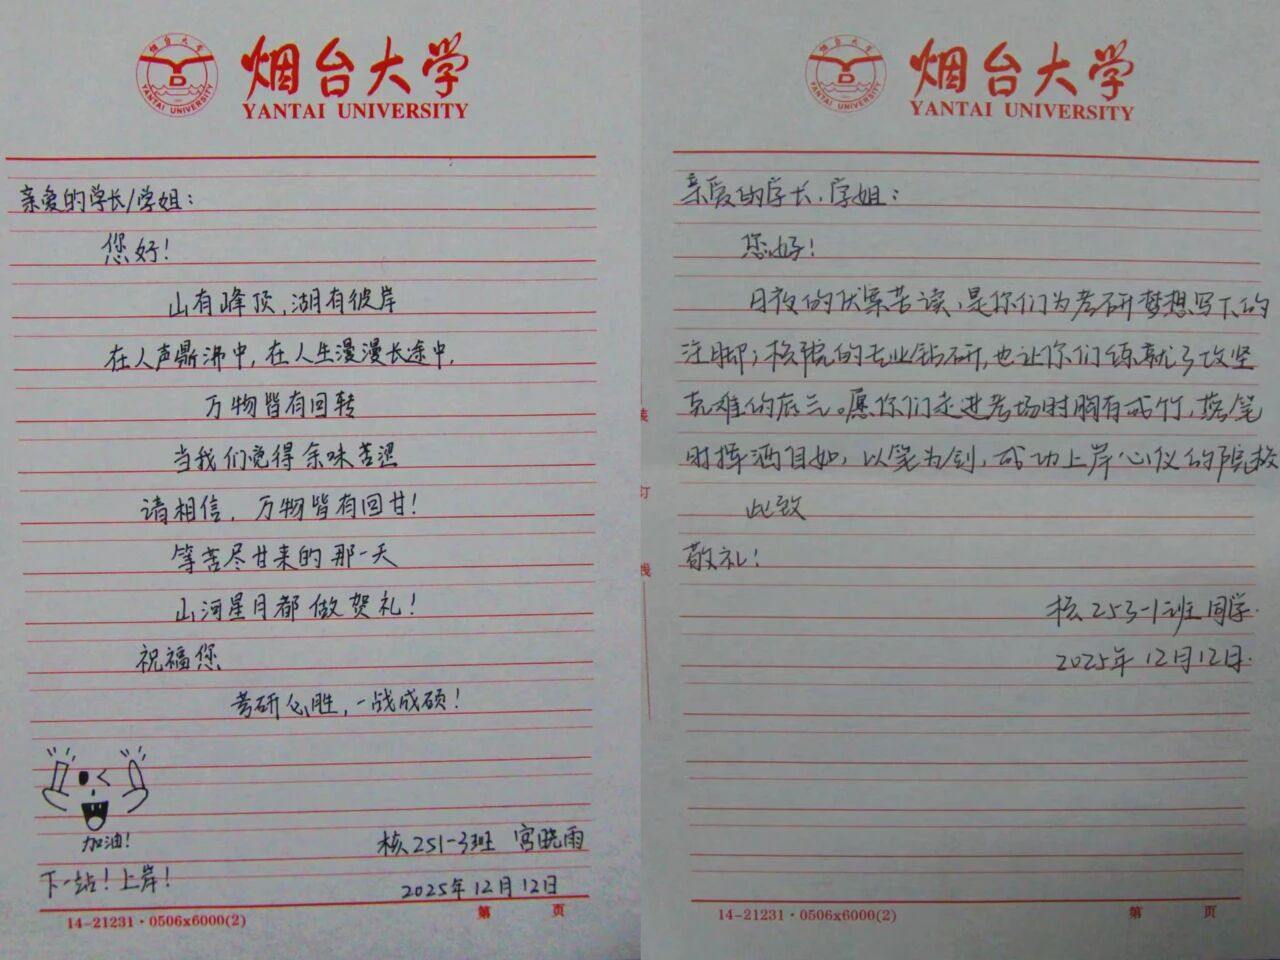 烟台大学
YANTAI UNIVERSITY
亲爱的学长/学姐：
您好！
山有峰顶，湖有彼岸
在人声鼎沸中，在人生漫漫长途中，
万物皆有回转
当我们觉得余味苦涩
请相信，万物皆有回甘！
等苦尽甘来的那一天
山河星月都做贺礼！
祝福您
考研必胜，一战成硕！
加油！
核251-3班 宫晓雨
下一站！上岸！
2025年12月12日
14-21231·0506x6000(2) 第 页
烟台大学
YANTAI UNIVERSITY
亲爱的学长、学姐：
您好！
日夜的伏案苦读，是你们为考研梦想写下的
注脚；核院的专业钻研，也让你们练就了攻坚
克难的底气。愿你们走进考场时胸有成竹，落笔
时挥洒自如，以笔为剑，成功上岸心仪的院校
此致
敬礼！
核253-1班同学.
2025年12月12日.
装
订
线
14-21231·0506x6000(2) 第 页